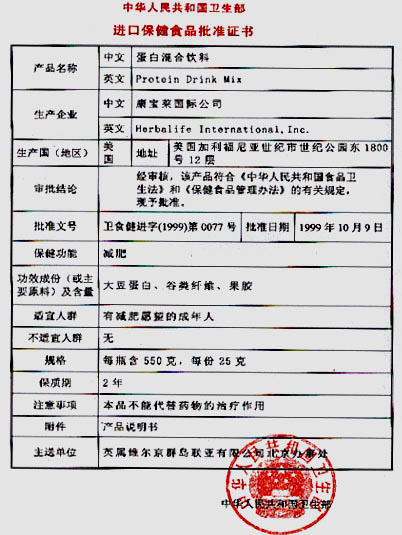 中华人民共和国卫生部
进口保健食品批准证书
产品名称 中文 蛋白混合饮料
英文 Protein Drink Mix
生产企业 中文 康宝莱国际公司
英文 Herbalife International,Inc.
生产国（地区） 美国 地址 美国加利福尼亚世纪市世纪公园东1800
号12层
审批结论 经审核，该产品符合《中华人民共和国食品卫
生法》和《保健食品管理办法》的有关规定，
现予批准。
批准文号 卫食健进字(1999)第0077号 批准日期 1999年10月9日
保健功能 减肥
功效成份（或主
要原料）及含量 大豆蛋白、谷类纤维、果胶
适宜人群 有减肥愿望的成年人
不适宜人群 无
规格 每瓶含550克，每份25克
保质期 2年
注意事项 本品不能代替药物的治疗作用
附件 产品说明书
主送单位 英属维尔京群岛联亚有限公司北京办事处
中华人民共和国卫生部
中华人民共和国卫生部